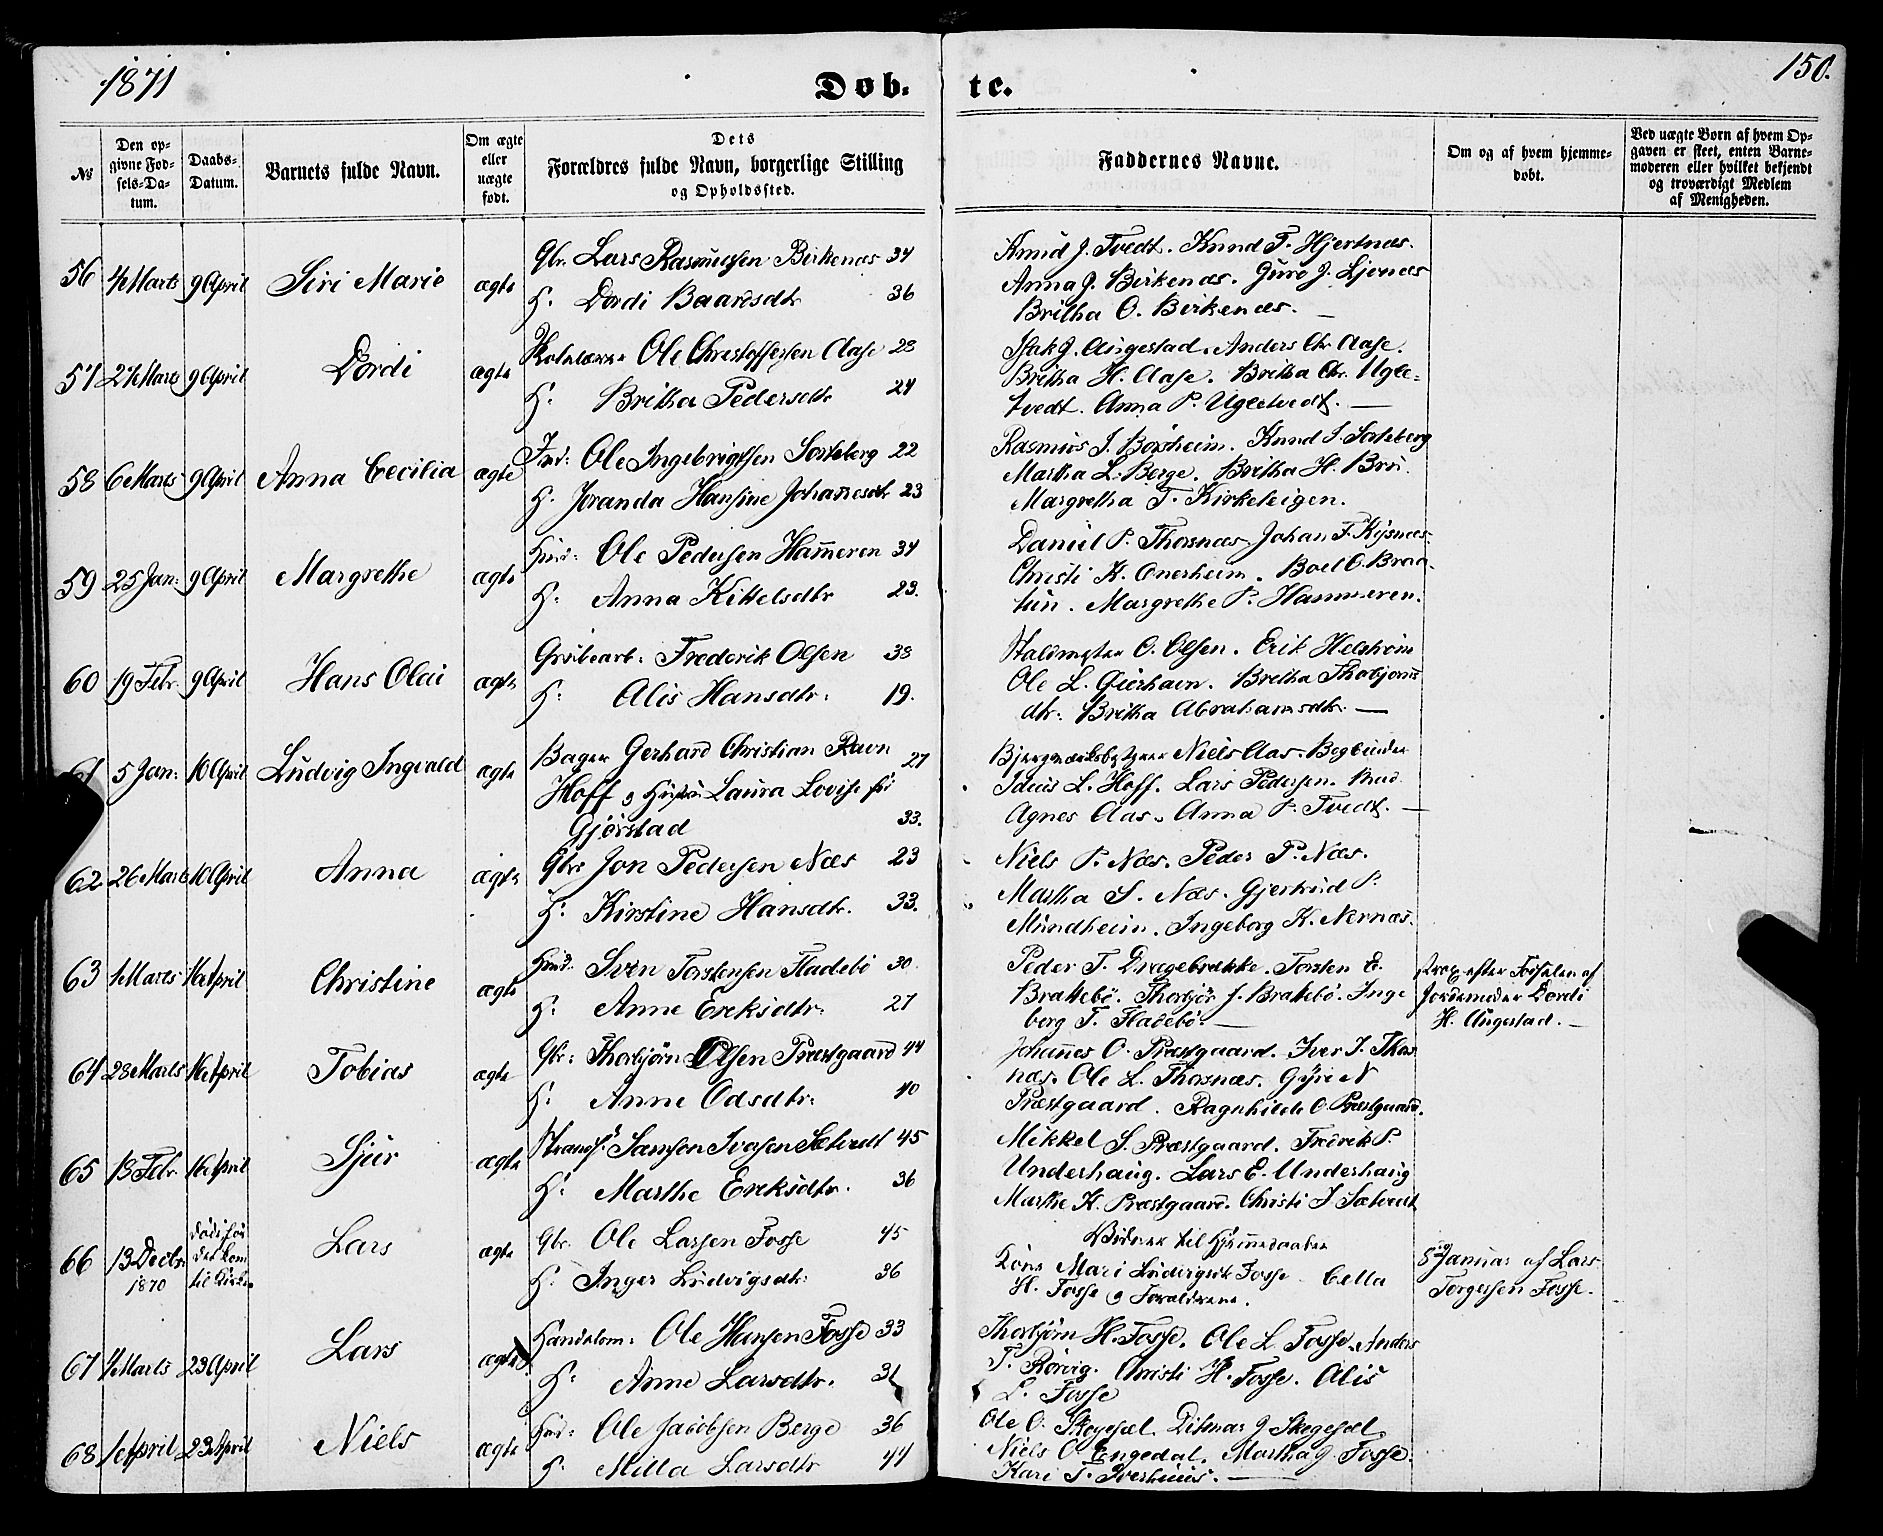 1871
Døb-
te.
150.
№
Den op-
givne Fød-
sels-Da-
tum.
Daabs-
Datum.
Barnets fulde Navn.
Om ægte
eller
uægte
født.
Dets
Forældres fulde Navn, borgerlige Stilling
og Opholdssted.
Faddernes Navne.
Om og af hvem hjemme-
døbt.
Ved uægte Børn af hvem Op-
gaven er skeet, enten Barne-
moderen eller hvilket bekjendt
og troværdigt Medlem
af Menigheden.
56 4 Marts 9 April Siri Marie ægte
Gbr. Lars Rasmussen Birkenæs 34
H. Dordi Baardsdtr 36
Knud J. Tvedt. Knud T. Hjertnæs.
Anna J. Birkenæs. Guro J. Ljonæs
Britha O. Birkenæs.
57 27 Marts 9 April Dordi ægte
Ole Christoffersen Aase 23
H. Britha Pedersdtr 24
Isak J. Augestad. Anders Chr. Aase.
Britha H. Aase. Britha Chr. Ugle-
tvedt. Anna P. Ugletvedt.
58 6 Marts 9 April Anna Cecilia ægte
Ind: Ole Ingebrigtsen Sorteberg 22
H. Joranda Hansine Johannesdtr 23
Rasmus J. Borsheim. Knud I. Sorteberg
Martha L. Berge. Britha H. Brui.
Margretha T. Kirkeleigen.
59 25 Jan: 9 April Margrethe ægte
Hmd: Ole Pedersen Hameren 34
H: Anna Kittelsdtr 23.
Daniel P. Thorsnæs. Johan F. Kysnæs.
Christi K. Onerheim. Boel O. Braa-
tun. Margrethe P. Hammeren.
60 19 Febr. 9 April Hans Olai ægte
Grubearb: Frederik Olsen 33
H: Alis Hansdtr: 19.
Staldmester O. Olsen. Erik Helstrøm
Ole L. Gierhavn. Britha Thorbjørns
dtr: Britha Abrahamsdtr.
61 5 Jan: 10 April Ludvig Ingvald ægte
Bager Gerhard Christian Ravn 27
Hoff og Hustru Laura Lovise f:
Gjørstad 33.
Bjergværksbestyrer Niels Aas. Bogbinder
L. Hoff. Lars Pedersen.
Agnes Aas. Anna P. Tvedt.
62 26 Marts 10 April Anna ægte
Gbr. Jon Pedersen Næs 23
H: Kirstine Hansdtr. 33.
Niels P. Næs. Peder P. Næs.
Martha S. Næs. Gjertrud P.
Mundheim. Ingeborg K. Nernæs.
63 1 Marts 16 April Christine ægte
Hmd. Sven Torstensen Fladebø 30.
H: Anne Eriksdtr. 27
Peder T. Drægebrække. Torsten E.
Brattebø. Thorbjør J. Brattebø. Inge
borg T. Fladebø.
efter Fødselen af
Jordemoder Dordi
H. Augestad.
64 28 Marts 16 April Tobias ægte
Gbr: Thorbjørn Olsen Præstgaard 44
H: Anne Odsdtr: 40
Johannes O. Præstgaard. Iver I. Thors
næs. Ole L. Thorsnæs. Gyri N
Præstgaard. Ragnhilde O. Præstgaard.
65 13 Febr. 16 April Sjur ægte
Strands: Samson Ivarsen Sætvedt 45
H: Marthe Eriksdtr. 36
Mikkel S. Præstgaard. Fredrik P.
Underhaug. Lars E. Underhaug
Marthe K. Præstgaard. Christi I Sætvedt
66 13 Decbr. 1870
død før
det kom
til Kirken
Lars ægte
Gbr. Ole Larsen Fosse 45
H: Inger Ludvigsdtr: 36
Vidner til Hjemmedaaben
Mari Ludvigsdtr Fosse. Cella
H. Fosse og Forældrene.
8 Januar af Lars
Torgersen Fosse.
67 4 Marts 23 April Lars ægte
Handelsm: Ole Hansen Fosse 33
H: Anne Larsdtr. 31
Thorbjørn H. Fosse. Ole L. Fosse. Anders
T. Rørvig. Christi H. Fosse. Alis
L. Fosse
68 1 April 23 April Niels ægte
Hmd: Ole Jacobsen Berge 36
H. Milla Larsdtr 44
Ole O. Skogesæl. Ditmar J. Skogesæl.
Niels O. Engedal. Martha J. Fosse.
Kari T. Tverhuus.